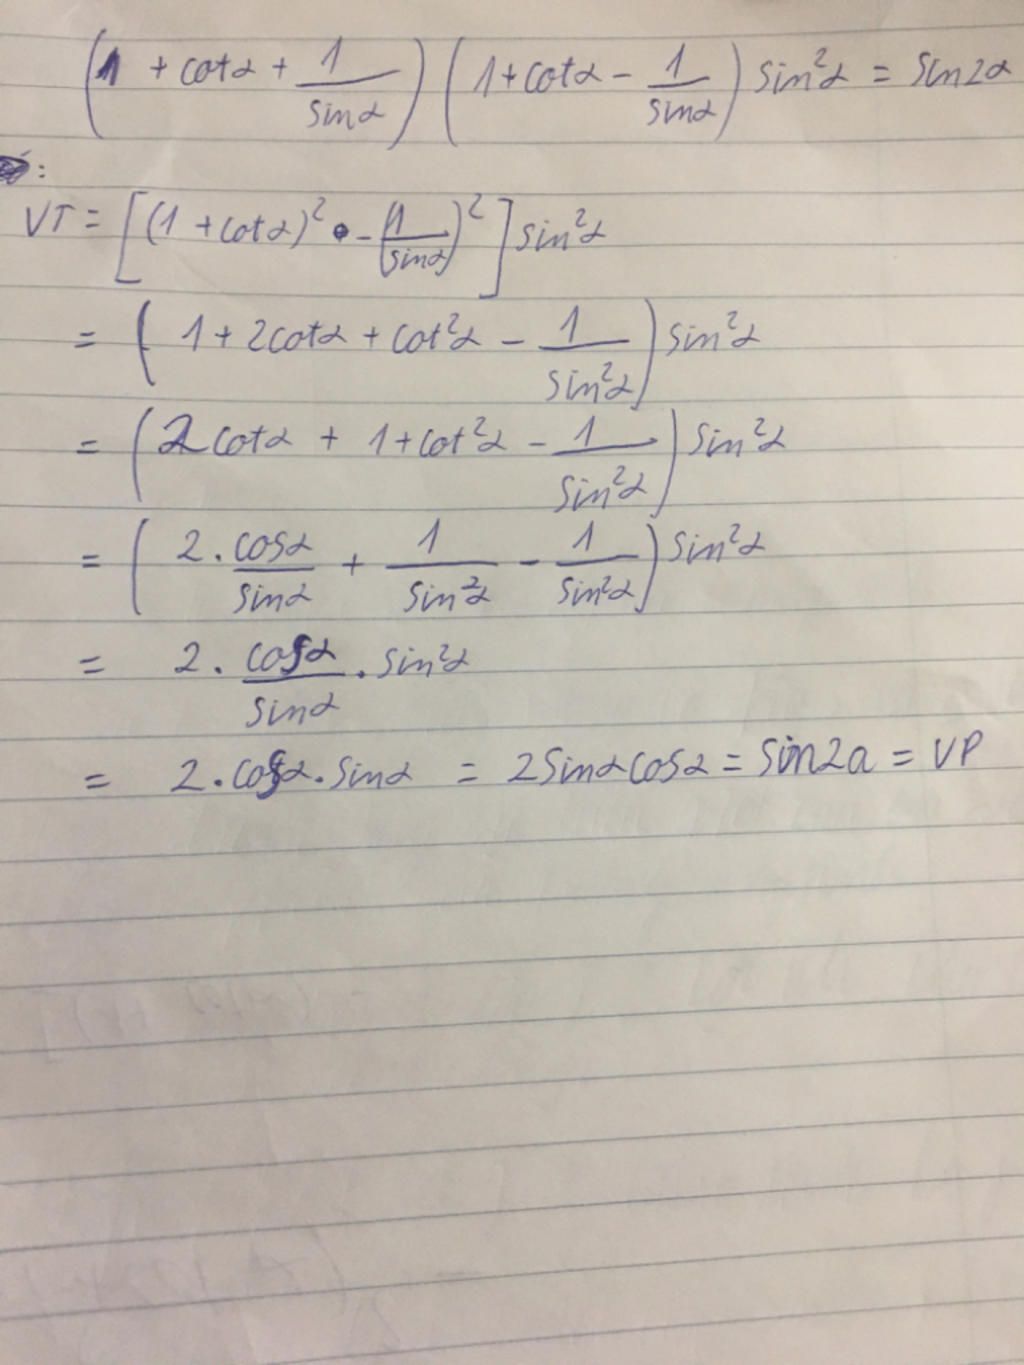 (1 + cotα + 1/sinα) (1 + cotα - 1/sinα) sin²α = sin2α
:
VT = [(1 + cotα)² - (1/sinα)²] sin²α
= (1 + 2cotα + cot²α - 1/sin²α) sin²α
= (2cotα + 1 + cot²α - 1/sin²α) sin²α
= (2 . cosα/sinα + 1/sin²α - 1/sin²α) sin²α
= 2 . cosα/sinα . sin²α
= 2 . cosα . sinα = 2sinαcosα = sin2a = VP